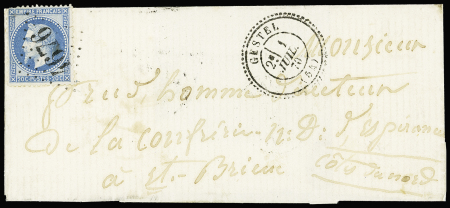 EMPIRE FRANÇAIS
GESTEL
2E
JUIL.
70
(54)
Monsieur
prud'homme Directeur
de la confrérie N: D: d'espérance
à St- Brieuc Côtes du nord